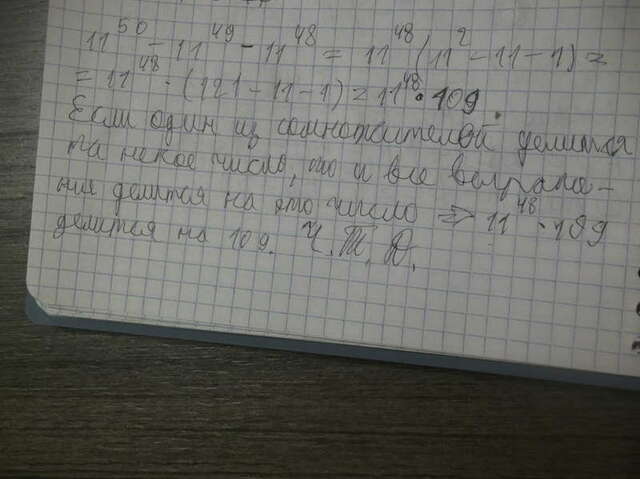 11^50 - 11^49 - 11^48 = 11^48 (11^2 - 11 - 1) =
= 11^48 · (121 - 11 - 1) = 11^48 · 109.
Если один из сомножителей делится
на некое число, то и все выраже-
ния делится на это число ⇒ 11^48 · 109
делится на 109. Ч.Т.Д.